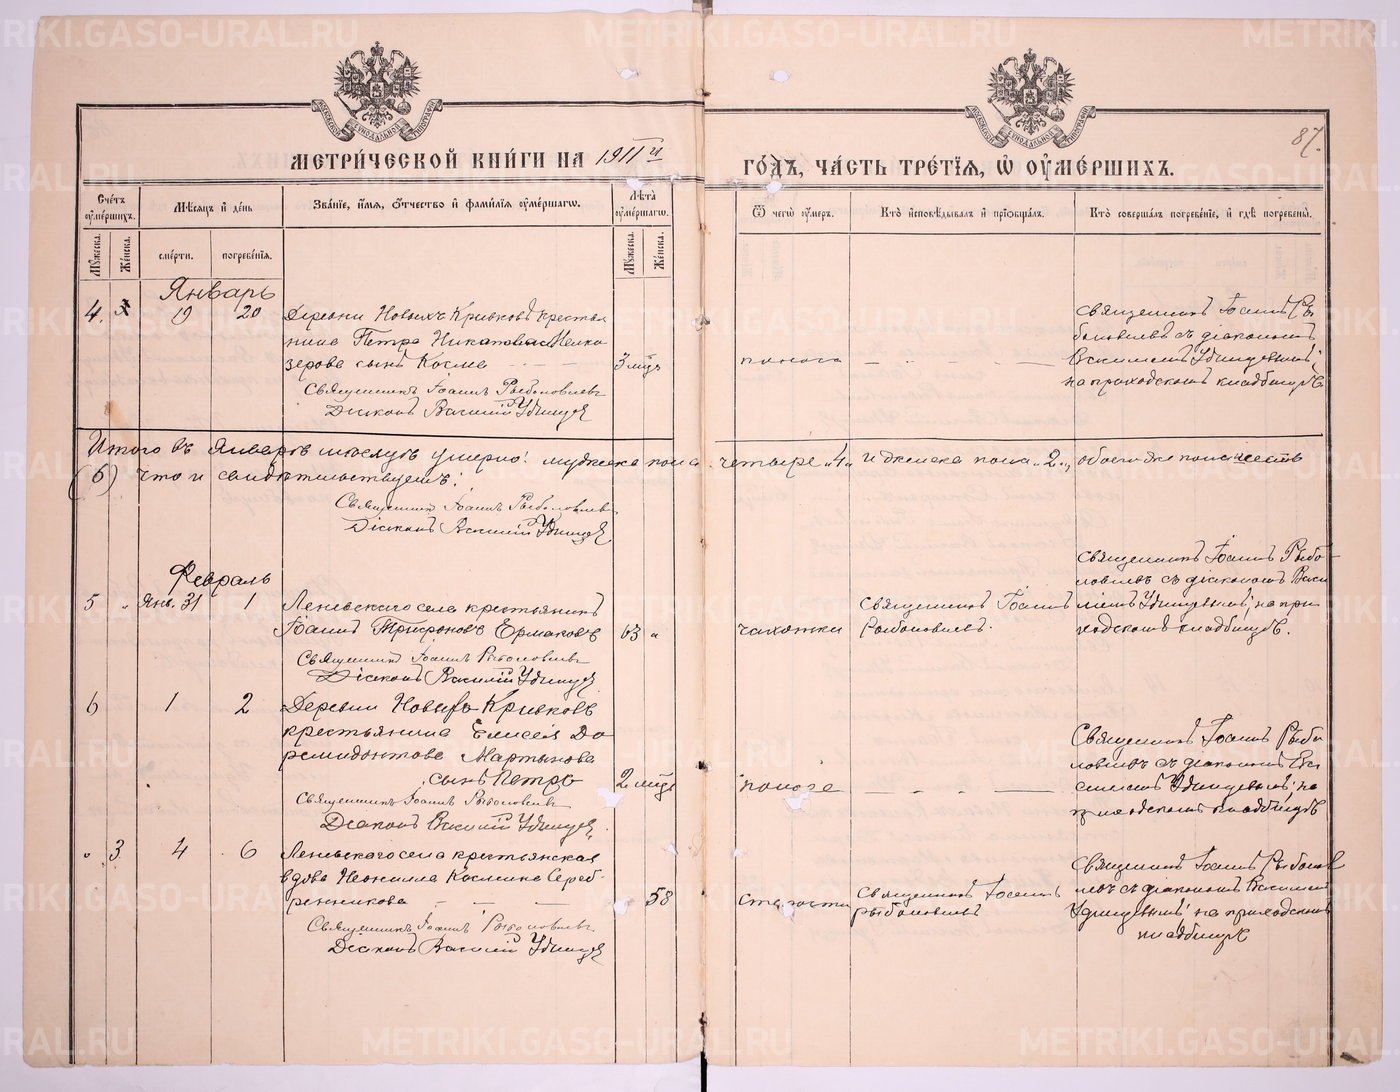 МЕТРИ́ЧЕСКОЙ КНИ́ГИ НА 1911й ГО́ДЪ, ЧА́СТЬ ТРЕ́ТІЯ, Ѡ ОУМЕ́РШИХЪ.
87.
Сче́тъ оуме́ршихъ.
Мѣсяцъ и де́нь
Зва́ніе, и́мя, о́тчество и фами́лія оуме́ршагѡ.
Лѣ́та оуме́ршагѡ.
Ѿ чегѡ̀ оу́меръ.
Кто̀ исповѣ́дывалъ и пріѡбща́лъ.
Кто̀ соверша́лъ погребе́ніе, и гдѣ̀ погребены̀.
Му́жеска.
Же́нска.
сме́рти.
погребе́нія.
Му́жеска.
Же́нска.
Январь
4. 19 20 Деревни Новыхъ Кривковъ крестья-
нина Петра
зерова сынъ Косма 3 мцъ
Священникъ Іоаннъ Рыболовлевъ
Діаконъ Василій Удинцевъ
поноса
Священникъ Іоаннъ Ры-
боловлевъ съ діакономъ
Василіемъ Удинцевымъ;
на приходскомъ кладбищѣ
Итого въ Январѣ мѣсяцѣ умерло: мужеска пола четыре „4„ и женска пола „2„, обоего же пола шесть
(6) что и свидѣтельствуемъ:
Священникъ Іоаннъ Рыболовлевъ
Діаконъ Василій Удинцевъ
Февраль
5 „ Янв. 31 1 Леневскаго села крестьянинъ
Іоаннъ Трифоновъ Ермаковъ 63 „
Священникъ Іоаннъ Рыболовлевъ
Діаконъ Василій Удинцевъ
чахотки
Священникъ Іоаннъ
Рыболовлевъ.
Священникъ Іоаннъ Рыбо-
ловлевъ съ діакономъ Васи-
ліемъ Удинцевымъ; на при-
ходскомъ кладбищѣ.
6 1 2 Деревни Новыхъ Кривковъ
крестьянина Елисея До-
ремидонтова Мартынова
сынъ Петръ 2 мцъ
Священникъ Іоаннъ Рыболовлевъ
Діаконъ Василій Удинцевъ.
поноса
Священникъ Іоаннъ Рыбо-
ловлевъ съ діакономъ Ва-
силіемъ Удинцевымъ; на
приходскомъ кладбищѣ
„ 3 4 6 Леневскаго села крестьянская
вдова Неонила Космина Сереб-
ренникова 58
Священникъ Іоаннъ Рыболовлевъ
Діаконъ Василій Удинцевъ
старости
Священникъ Іоаннъ
Рыболовлевъ
Священникъ Іоаннъ Рыболов-
левъ съ діакономъ Василіемъ
Удинцевымъ; на приходскомъ
кладбищѣ
METRIKI.GASO-URAL.RU